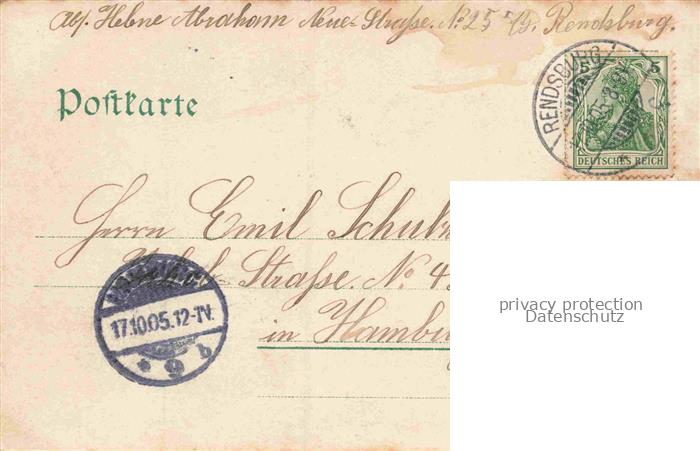 Abs. Helene Abraham Neue-Strasse. No 25 I/3. Rendsburg.
Postkarte
RENDSBURG
5 5
05. 8-9V
DEUTSCHES REICH
Herrn Emil Schulz
Strasse. No 4
in Hambu
17.10.05.12-1V.
* 9 b
privacy protection
Datenschutz